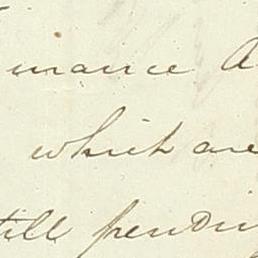 mance A
which are
till pendin